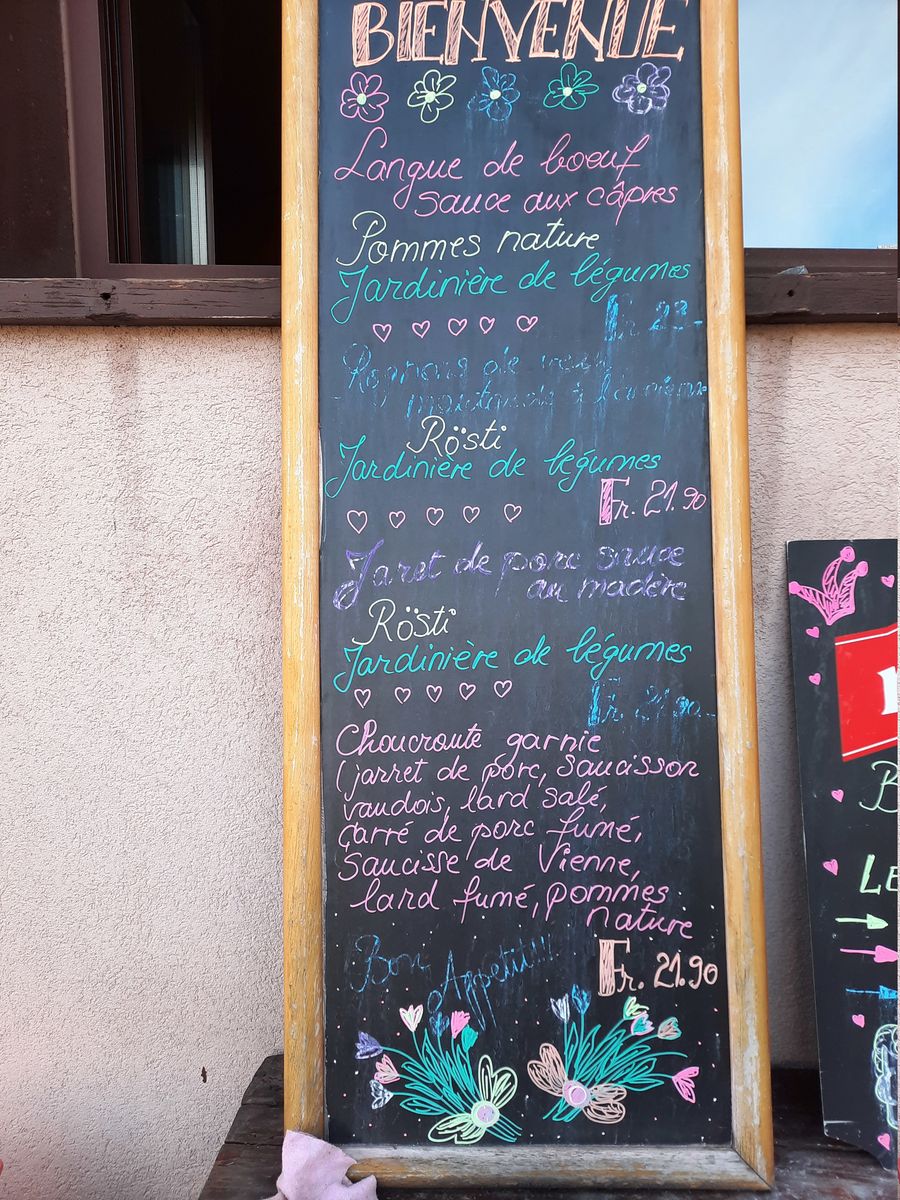 BIENVENUE
Langue de boeuf
sauce aux câpres
Pommes nature
Jardinière de légumes
Fr. 23.-
Rognons de
à l'ancienne
Rösti
Jardinière de légumes
Fr. 21.90
Jaret de porc sauce
au madère
Rösti
Jardinière de légumes
Fr.
Choucroute garnie
(jarret de porc, saucisson
vaudois, lard salé,
carré de porc fumé,
saucisse de Vienne,
lard fumé, pommes
nature
Fr. 21.90
Bon Appetit!!!
B
LE